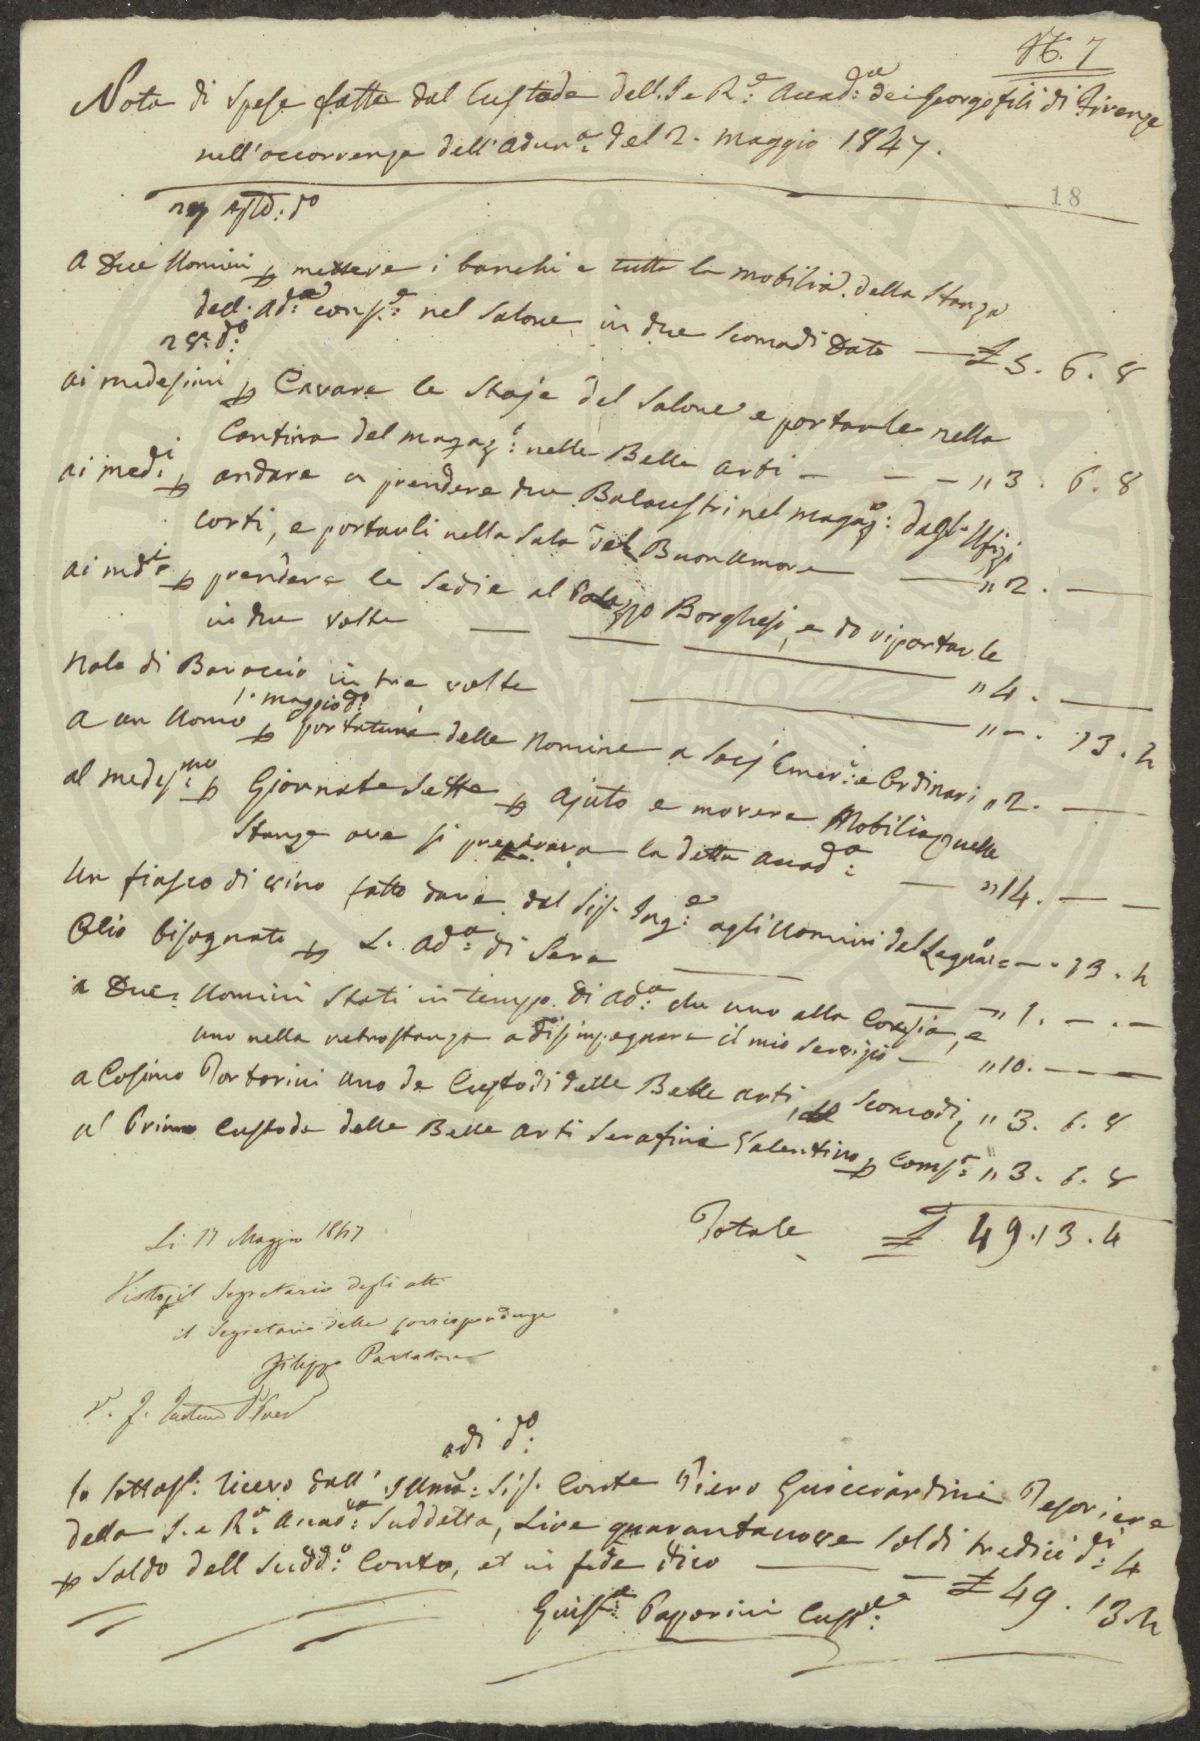 N. 7
Nota di Spese fatte dal Custode dell'I. e R.e Accad:a dei Georgofili di Firenze
nell'occorrenza dell'Adun:a del 2. Maggio 1847.
18
do
A Due Uomini p mettere i banchi e tutta la mobilia della Stanza
dell. Ad:e cons:e nel Salone in due Scomodi Dato — £ 3. 6. 8
28: do:
ai medesimi p Cavare le Staje del Salone e portarle nella
Cantina del magaz: nelle Belle arti — — — „ 3. 6. 8
ai med:i p andare a prendere due Balaustri nel magaz: dagl. Ufizj
corti, e portarli nella Sala del Buonumore — „ 2. —
ai md:i p prendere le Sedie al Palazzo Borghesi, e di riportarle
in due volte — — — „ 4. —
Nolo di Baroccio in tre volte — „ —. 13. 4
1. maggio do:
A un Uomo p portature delle Nomine a Socj Emer:i e Ordinari „ 2. —
al medesmo: p Giornate Sette p ajuto e movere Mobilia quelle
Stanze ove si preparava la detta Accad:a — „ 14. — —
Un fiasco di vino fatto dare dal Sig. Ing:e agli Uomini del Legnai: — . 13. 4
Olio bisognato p L. Ad:a di Sera — „ 1. — . —
a Due: Uomini Stati in tempo di Ad:a che uno alla Corsia, e
uno nella retrostanza a disimpegnare il mio Servizio — „ 10. — —
a Cosimo Tortorini uno de Custodi delle Belle arti, Scomodi, „ 3. 6. 8
al Primo Custode delle Belle Arti Serafini Valentino p Comp:e „ 3. 6. 8
Totale £ 49. 13. 4
Li 17 Maggio 1847
Visto, il Segretario degli atti
il Segretario delle corrispondenze
Filippo Parlatore
V. F.
adi do:
Io Sottos: ricevo dall' Illmo: Sig. Conte Piero Guicciardini Tesoriere
della I. e R.e Accad:a Suddetta, Lire quarantanove soldi tredici d:i 4
p Saldo dell Sudd:o Conto, et in fede dico — £ 49. 13. 4
Guis:e Paporini Cust:e